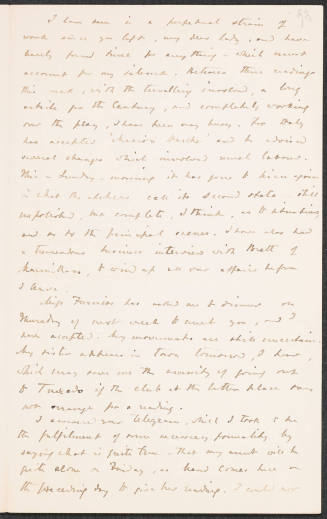 I have been in a perpetual strain of
work since you left, my dear lady, and have
barely found time for anything – which must
account for my silence. Between three readings
this week, with the travelling involved, a long
article for the Century, and completely working
over the play, I have been very busy. For Daly
has accepted and he advised
several changes which involved much labour.
This – Sunday – morning it has gone to him again
in what the etchers call its second state – still
unpolished, but complete, I think, as to
and as to the principal scenes. I have also had
a tremendous business interview with Brett of
Macmillans, to wind up all our affairs before
I leave.
Miss Furniss has asked me to dinner on
Thursday of next week to meet you, and I
have accepted. My movements are still uncertain.
My sister appears in town tomorrow, I hear,
which may save me the necessity of going out
to Tuxedo if the club at the latter place may
not arrange for a reading.
I answered your telegram, which I took to be
the fulfilment of some necessary formality, by
saying what is quite true – that my aunt will be
quite alone on Friday, as
the preceding day to give her reading. I could not